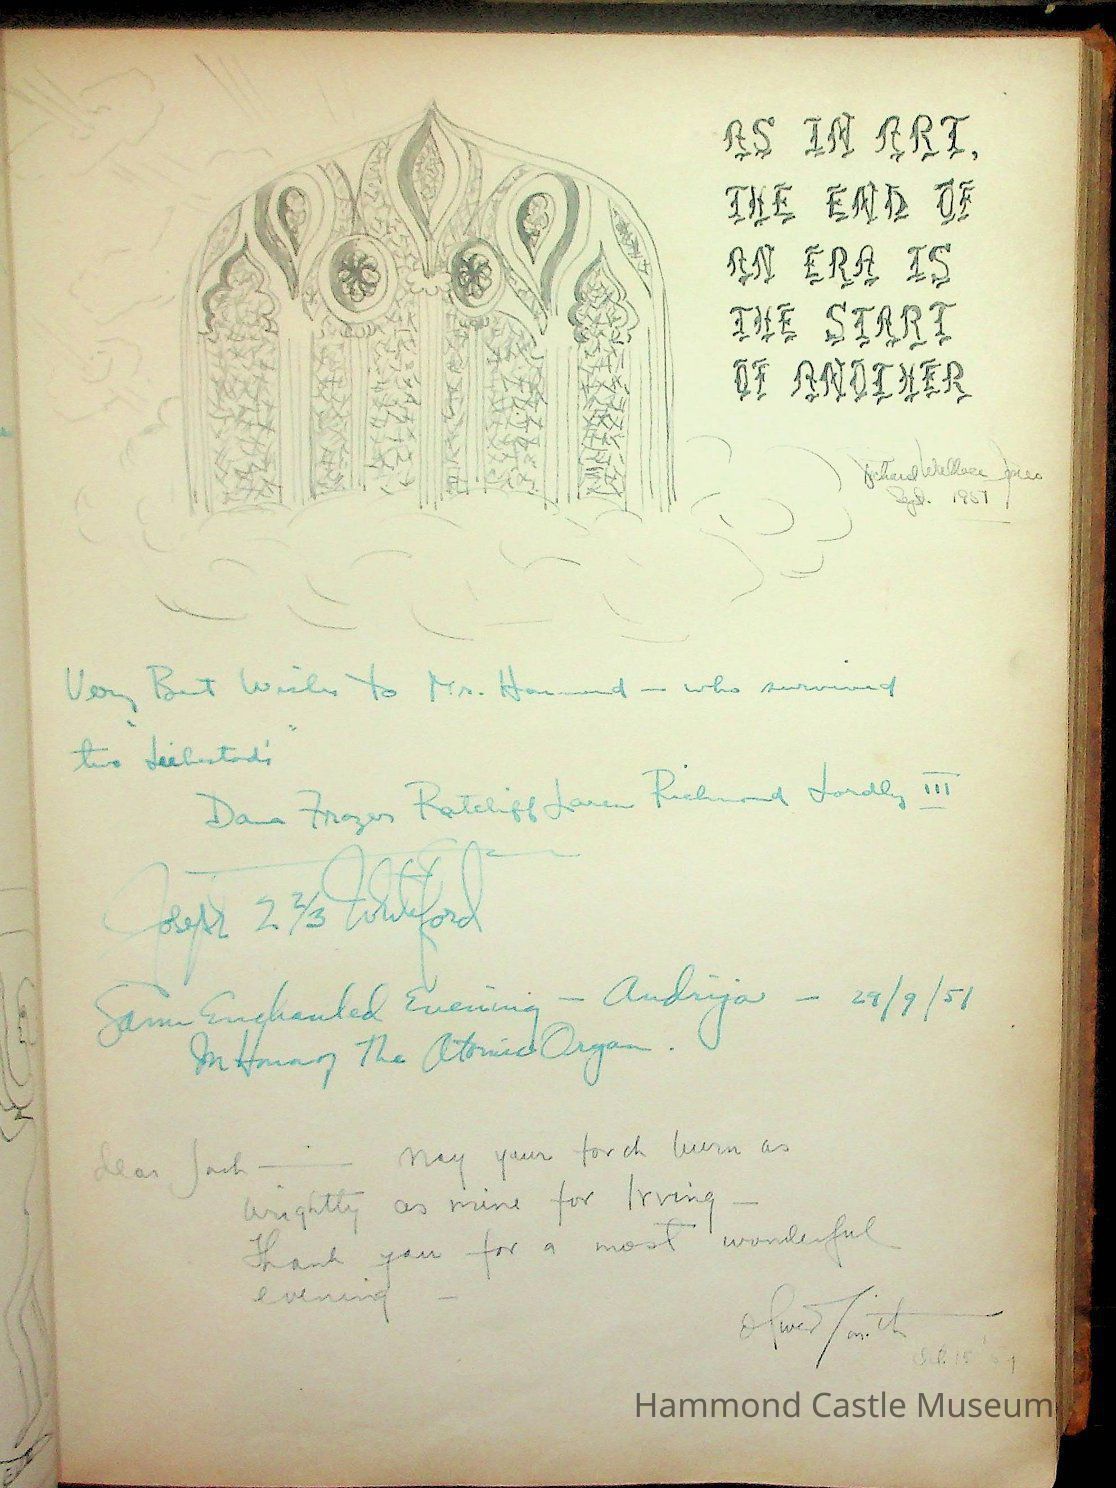 AS IN ART,
THE END OF
AN ERA IS
THE START
OF ANOTHER
Richard Wallace Jones
Sept. 1951
Very Best Wishes to Mr. Hammond – who survived
two "Liebestods"
Dana Frazer Ratcliff Loren Richmond Lordly III
Joseph 2 2/3 Whiteford
Some Enchanted Evening – Andrija – 29/9/51
In Honor of The Atomic Organ.
Dear Jack —— May your torch burn as
brightly as mine for Irving –
Thank you for a most wonderful
evening –
Oliver Smith
15 '51
Hammond Castle Museum